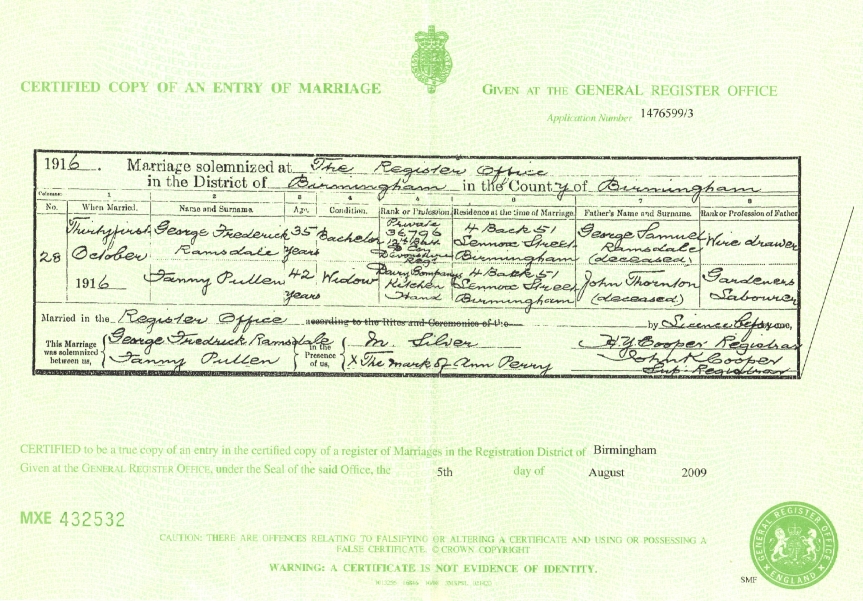 CERTIFIED COPY OF AN ENTRY OF MARRIAGE
GIVEN AT THE GENERAL REGISTER OFFICE
Application Number 1476599/3
1916. Marriage solemnized at The Register Office
in the District of Birmingham in the County of Birmingham
Columns: 1 2 3 4 5 6 7 8
No. When Married. Name and Surname. Age. Condition. Rank or Profession. Residence at the time of Marriage. Father's Name and Surname. Rank or Profession of Father
28 Thirtyfirst October 1916
George Frederick Ramsdale 35 years Bachelor Private 36796 Devonshire Regt 4 Back 51 Lennox Street Birmingham George Samuel Ramsdale (deceased) Wire drawer
Fanny Pullen 42 years Widow Dairy Company's Kitchen Hand 4 Back 51 Lennox Street Birmingham John Thornton (deceased) Gardeners Labourer
Married in the Register Office according to the Rites and Ceremonies of the by Licence before me,
This Marriage was solemnized between us, George Fredrick Ramsdale Fanny Pullen in the Presence of us, M. Silver X The mark of Ann Perry
H.Y. Cooper Registrar
John K Cooper
Sup: Registrar
CERTIFIED to be a true copy of an entry in the certified copy of a register of Marriages in the Registration District of Birmingham
Given at the GENERAL REGISTER OFFICE, under the Seal of the said Office, the 5th day of August 2009
MXE 432532
CAUTION: THERE ARE OFFENCES RELATING TO FALSIFYING OR ALTERING A CERTIFICATE AND USING OR POSSESSING A
FALSE CERTIFICATE. © CROWN COPYRIGHT
WARNING: A CERTIFICATE IS NOT EVIDENCE OF IDENTITY.
SMF
GENERAL REGISTER OFFICE
ENGLAND